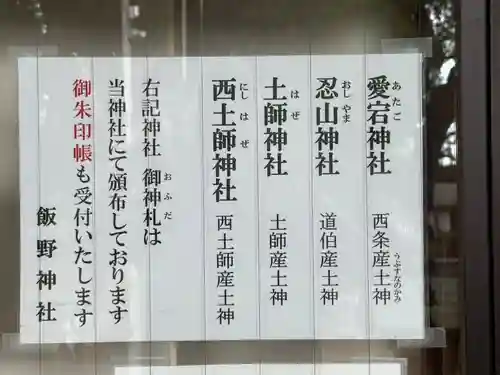 愛宕神社 西条産土神
あたご うぶすなのかみ
忍山神社 道伯産土神
おしやま
土師神社 土師産土神
はぜ
西土師神社 西土師産土神
にしはぜ
右記神社 御神札は
おふだ
当神社にて頒布しております
御朱印帳も受付いたします
飯野神社